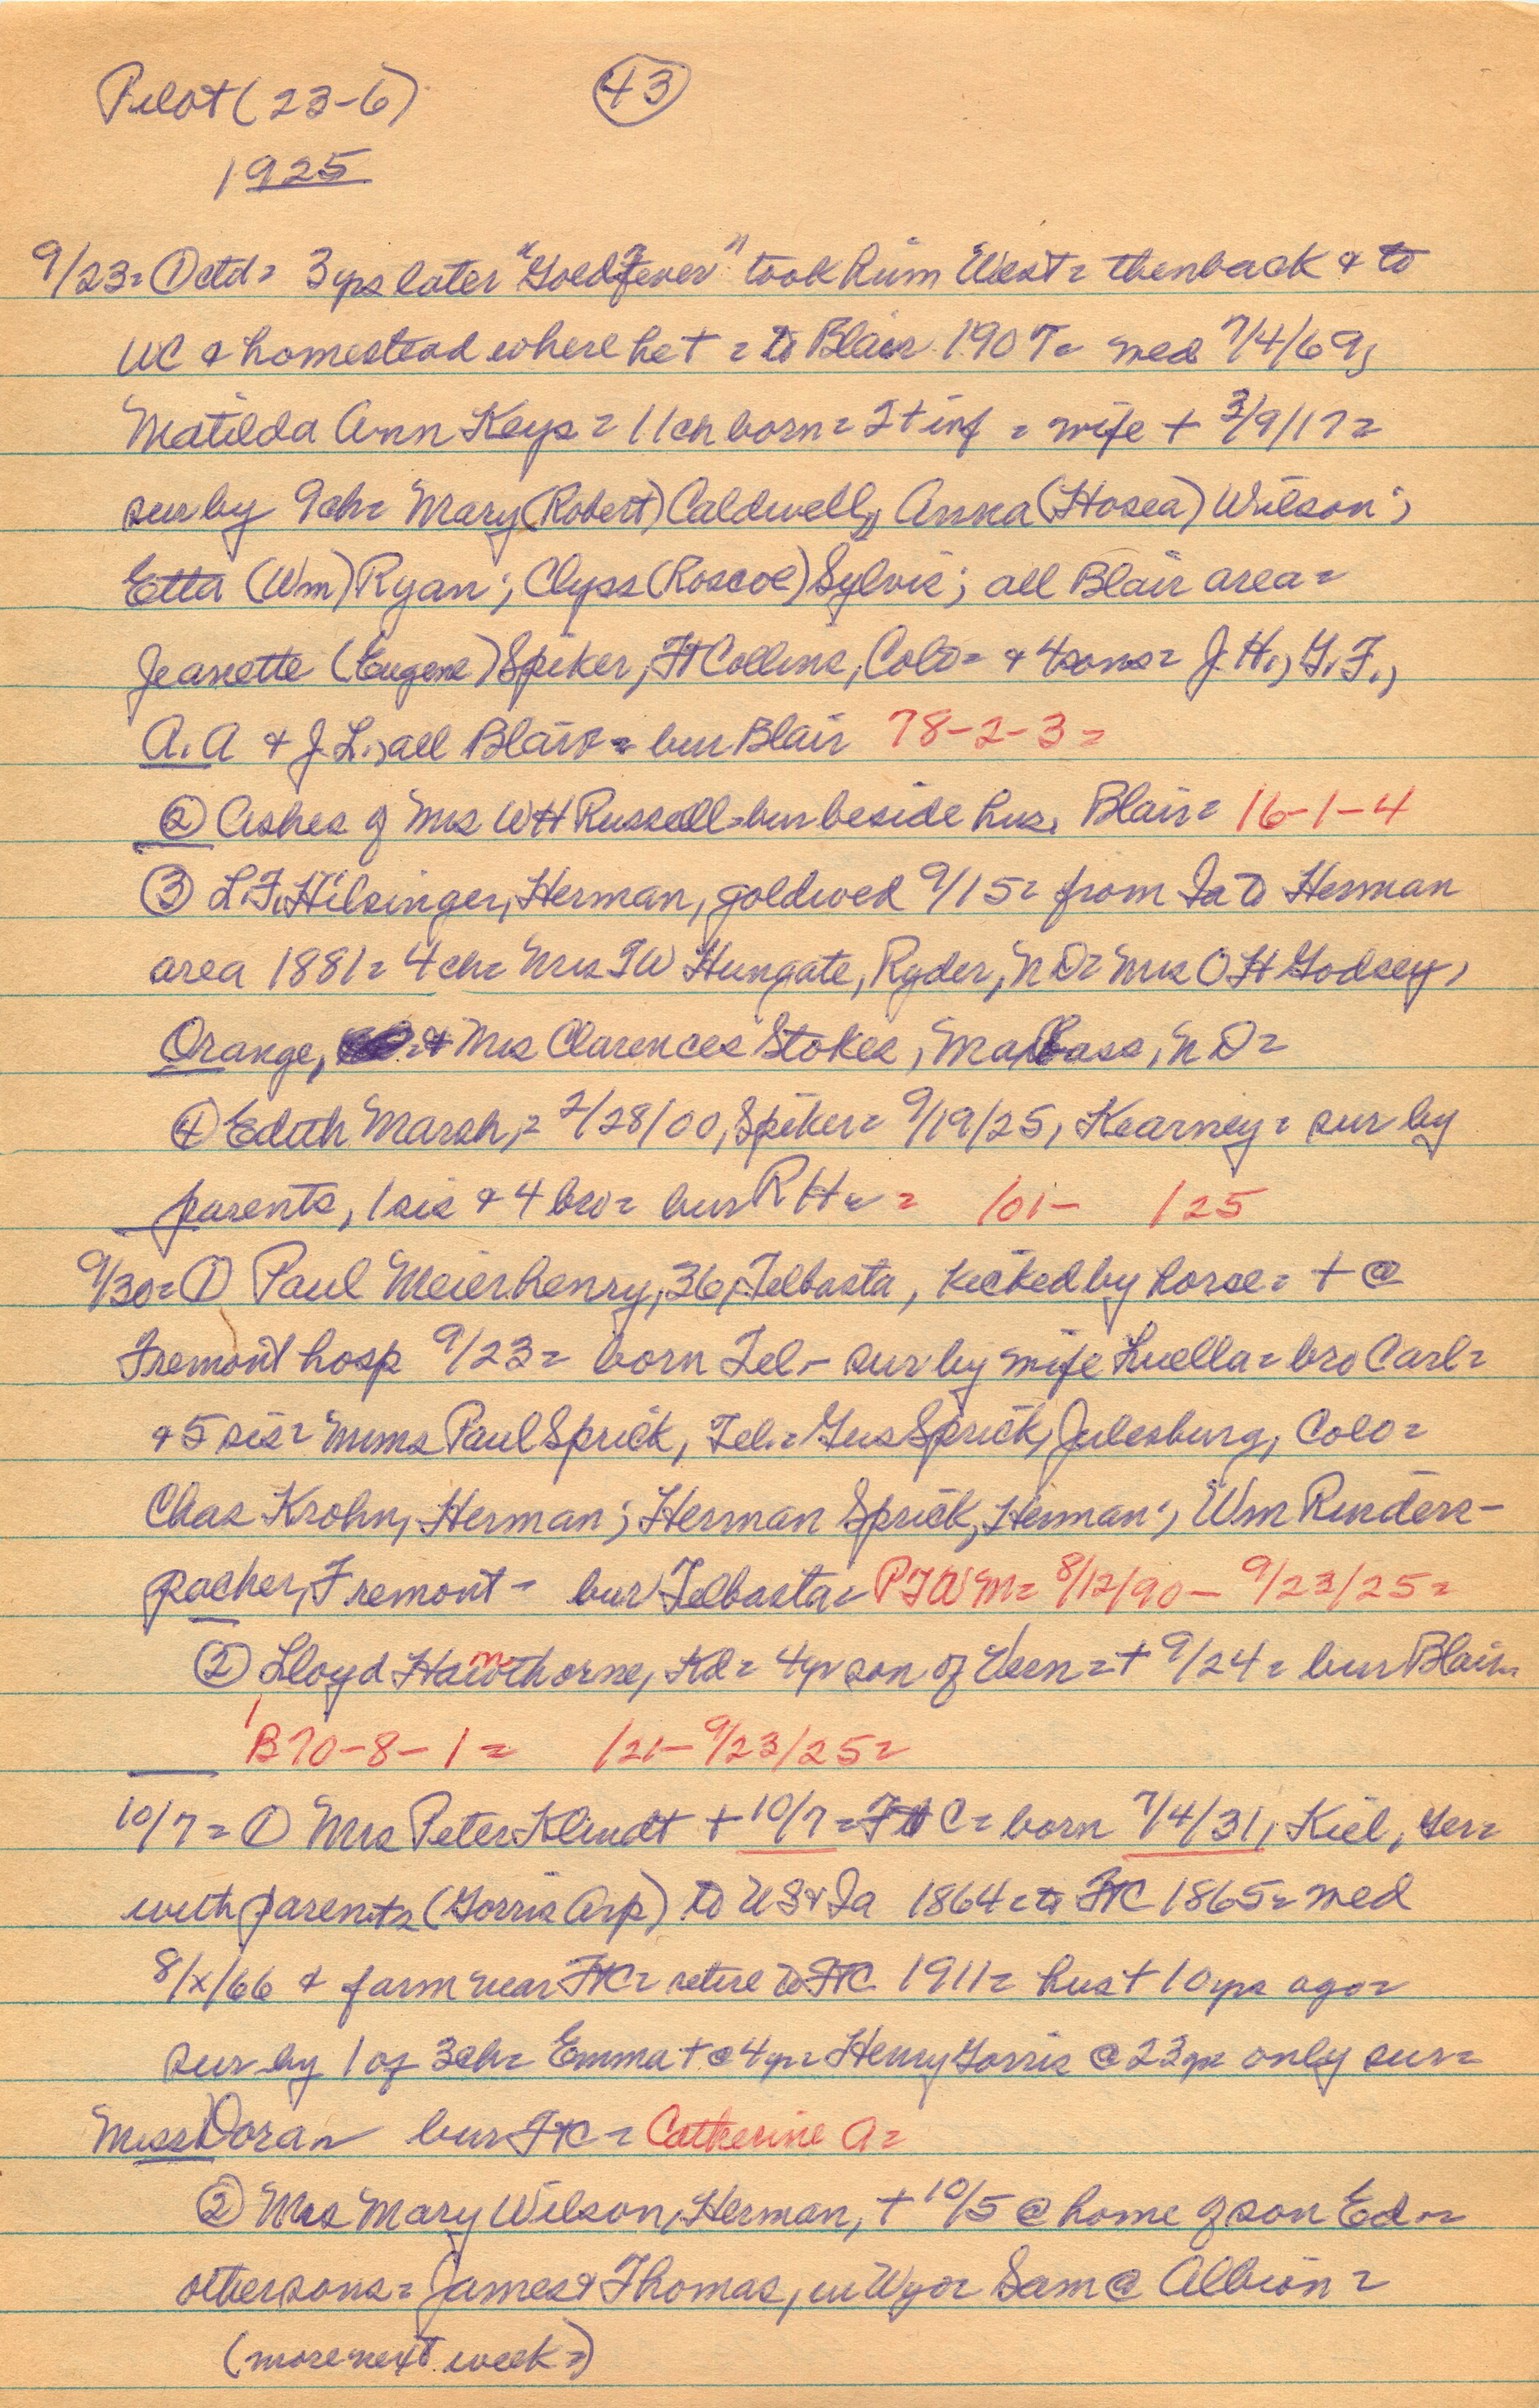 Pilot (23-6) 43
1925
9/23= ① ctd= 3 yrs later "Gold Fever" took him West= then back & to
WC & homestead where he + = to Blair 1907= med 7/4/69,
Matilda Ann Keys= 11 ch born= 2 + inf = wife + 3/9/17=
sur by 9 ch= Mary (Robert) Caldwell, Anna (Hosea) Wilson;
Etta (Wm) Ryan; Clyss (Roscoe) Sylvis; all Blair area=
Jeanette (Eugene) Spiker, Ft Collins, Colo= & 4 sons= J.H., G.F.,
A.A & J.L., all Blair= bur Blair 78-2-3=
② Ashes of Mrs WH Russell= bur beside hus. Blair= 16-1-4
③ L.F. Hilsinger, Herman, goldwed 9/15= from Ia to Herman
area 1881= 4 ch= Mrs IW Hungate, Ryder, ND= Mrs OH Godsey,
Orange, = & Mrs Clarences Stokes, ND=
④ Edith Marsh,= 2/28/00, Spiker= 9/19/25, Kearney= sur by
parents, 1 sis & 4 bro= bur RH= = 101- 125
9/30= ① Paul Meierhenry, 36, Telbasta, kicked by horse= + @
Fremont hosp 9/23= born Tel- sur by wife Luella= bro Carl=
& 5 sis= Mmms Paul Sprick, Tel.= Gus Sprick, Julesburg, Colo=
Chas Krohn, Herman; Herman Sprick, Herman; Wm Rinders-
pacher, Fremont- bur Telbasta= PJWM= 8/12/90- 9/23/25=
② Lloyd Hawthorne, Kd= 4 yr son of Veen= + 9/24= bur Blair=
B70-8-1= 121- 9/23/25=
10/7= ① Mrs Peter Klindt + 10/7= FtC= born 7/4/31, Kiel, Ger=
with parents (Gorris Arp) to US & Ia 1864= to FtC 1865= med
8/x/66 & farm near FtC= retire to FtC 1911= hus + 10 yrs ago=
sur by 1 of 3 ch= Emma + @ 4 yr= Henry Gorris @ 23 yr only sur=
Miss Dora= bur FtC= Catherine A=
② Mrs Mary Wilson, Herman, + 10/5 @ home of son Ed=
other sons= James & Thomas, in Wyo= Sam @ Albion=
(more next week=)